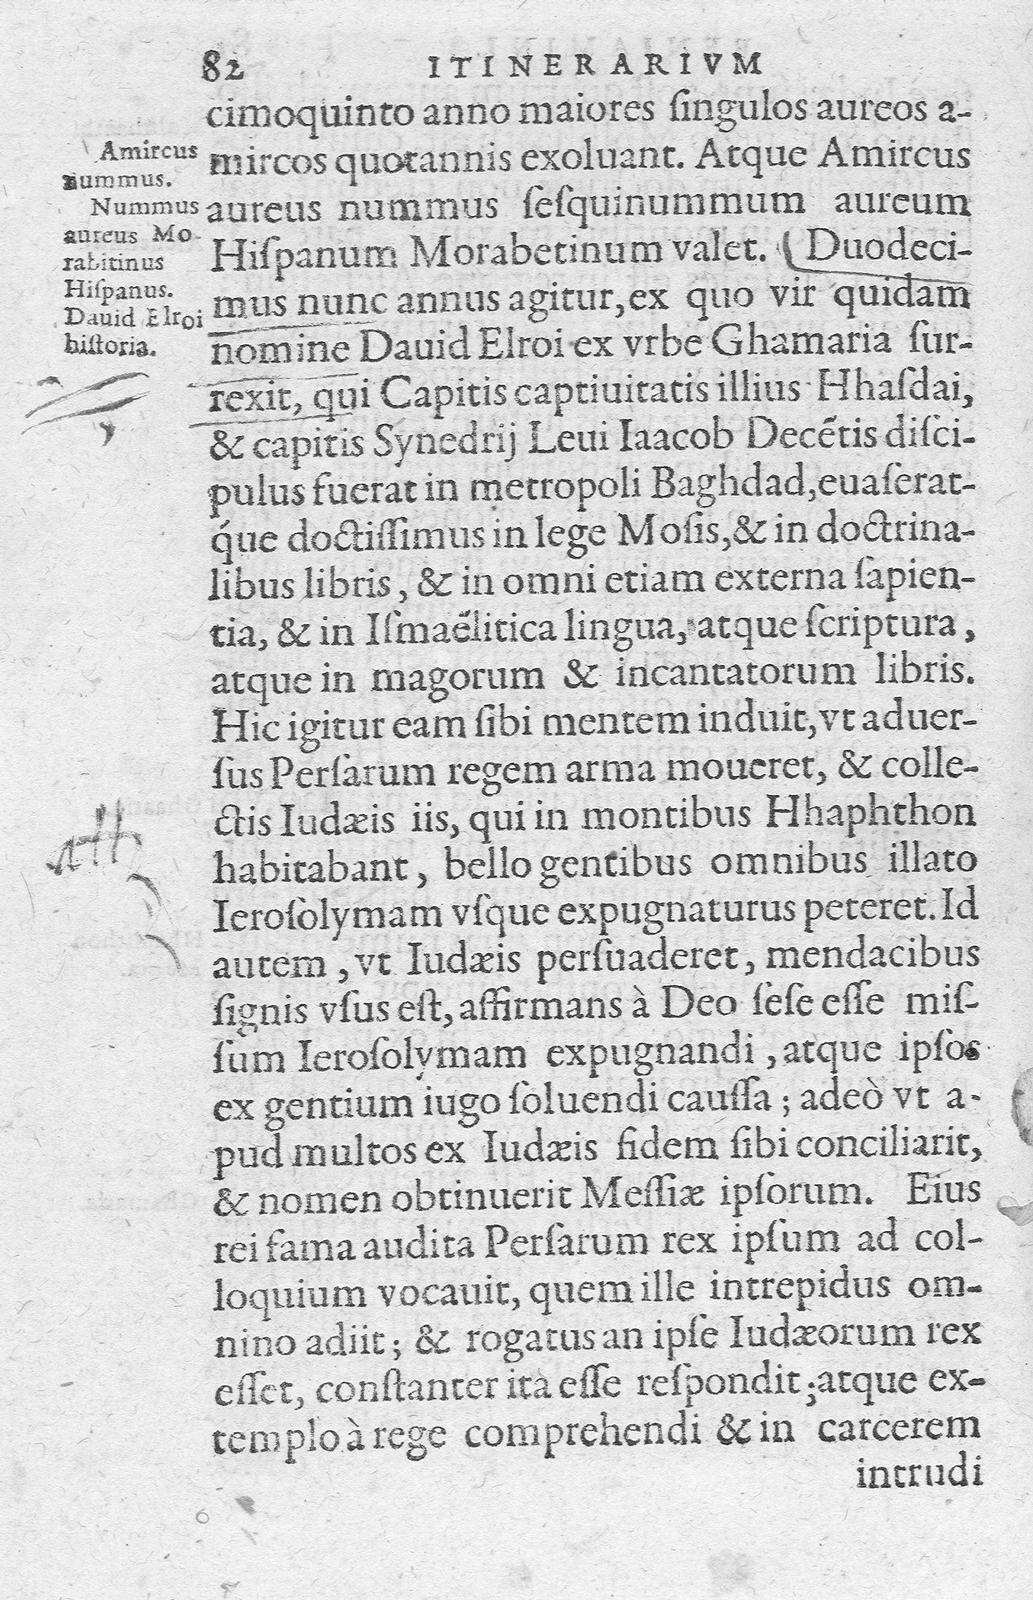 82 ITINERARIVM
cimoquinto anno maiores ſingulos aureos a-
mircos quotannis exoluant. Atque Amircus
aureus nummus ſeſquinummum aureum
Hiſpanum Morabetinum valet. (Duodeci-
mus nunc annus agitur, ex quo vir quidam
nomine Dauid Elroi ex vrbe Ghamaria ſur-
rexit, qui Capitis captiuitatis illius Hhaſdai,
& capitis Synedrij Leui Iaacob Decẽtis diſci-
pulus fuerat in metropoli Baghdad, euaſerat-
q́ue doctiſſimus in lege Moſis, & in doctrina-
libus libris, & in omni etiam externa ſapien-
tia, & in Iſmaëlitica lingua, atque ſcriptura,
atque in magorum & incantatorum libris.
Hic igitur eam ſibi mentem induit, vt aduer-
ſus Perſarum regem arma moueret, & colle-
ctis Iudæis iis, qui in montibus Hhaphthon
habitabant, bello gentibus omnibus illato
Ieroſolymam vſque expugnaturus peteret. Id
autem, vt Iudæis perſuaderet, mendacibus
ſignis vſus eſt, affirmans à Deo ſeſe eſſe miſ-
ſum Ieroſolymam expugnandi, atque ipſos
ex gentium iugo ſoluendi cauſſa; adeò vt a-
pud multos ex Iudæis fidem ſibi conciliarit,
& nomen obtinuerit Meſſiæ ipſorum. Eius
rei fama audita Perſarum rex ipſum ad col-
loquium vocauit, quem ille intrepidus om-
nino adiit; & rogatus an ipſe Iudæorum rex
eſſet, conſtanter ita eſſe reſpondit; atque ex-
templo à rege comprehendi & in carcerem
intrudi
Amircus
nummus.
Nummus
aureus Mo-
rabitinus
Hiſpanus.
Dauid Elroi
hiſtoria.